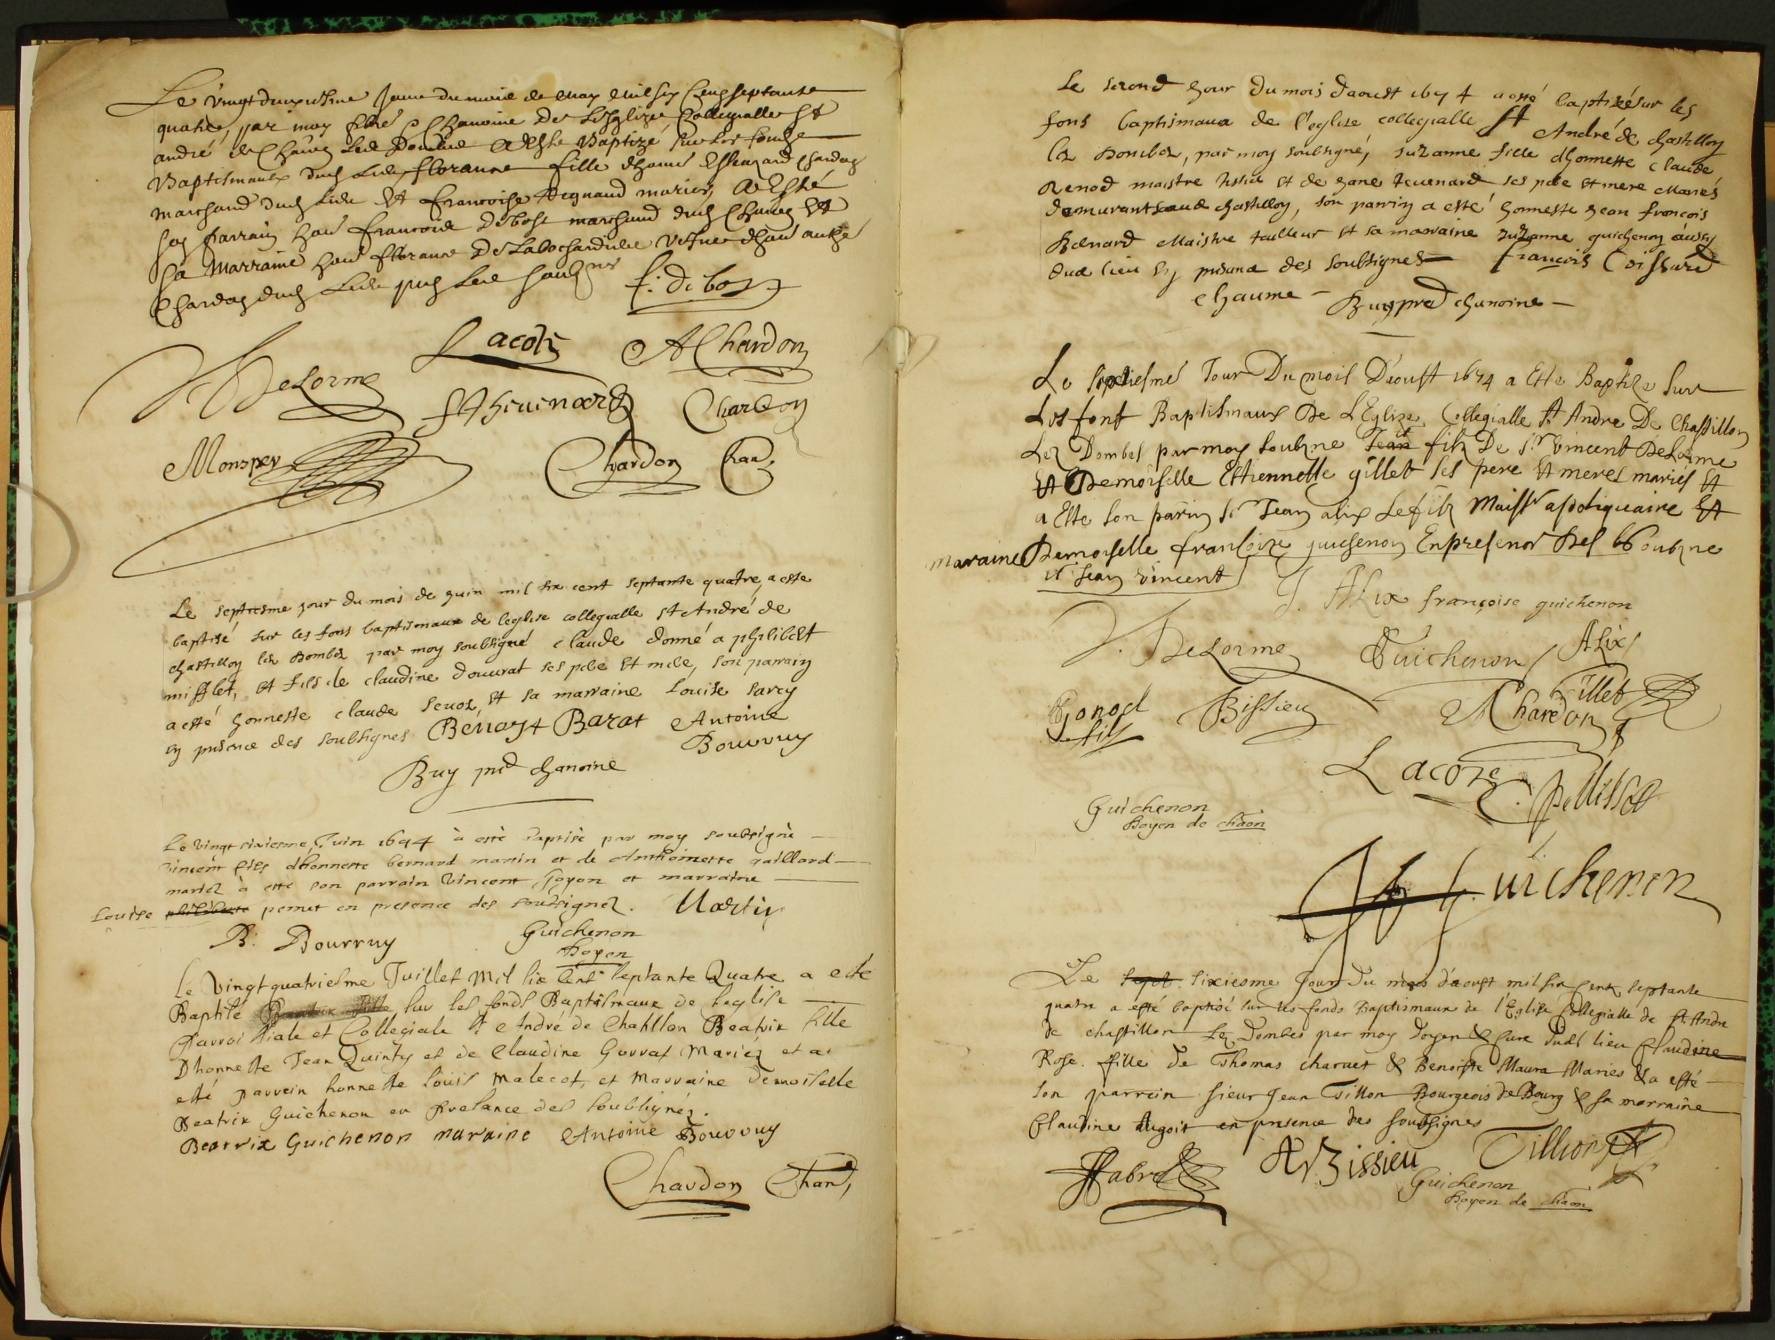 Le vingt deuxiesme Jour du mois de may mil six Cens septante
quatre, par moy pbre Chanoine de L'Esglize Collegialle St
andré de Lez Dombe a Esté Baptizé sur les fonds
Baptismaulx dud Lieu floranne fille Chardon
marchand dud Lieu Et francoise Regnaud mariez, a Esté
son parrain hon francois Debost marchand dud Et
sa marraine hon floranne De vefve
Chardon dud Lieu
f. debost
Lacoste
A Chardon
V Delorme
J Thevenard
Chardon
Monsper
Chardon Chan.
Le septiesme jour du mois de juin mil six cent septante quatre, a esté
baptisé sur les fons baptismaux de leglise collegialle st André de
chastillon lez Dombes par moy soubsigné claude donné a philibert
mifflet, et fils de claudine douvrat ses pere et mere, son parrain
a esté honneste claude Et sa marraine Louise Sarcy
en presence des soubsignes Benoyt Barat Antoine
Bourruy
Buy pred chanoine
Le vingt sixiesme Juin 1674 à esté baptisé par moy soubsigné
vincent fils dhonneste bernard martin et de Anthoinette gaillard
mariez à esté son parrain Vincent Goyon et marraine
Louise philiberte pernet en presence des soubsignez. Martin
B. Bourruy
Guichenon
Doyen
Le Vingt quatriesme Juillet Mil six Cent septante Quatre a esté
Baptisé sur les fonds Baptismaux de Leglise
Parroissiale et Collegiale St Andre de Chastillon Beatrix fille
Dhonneste Jean Quinty et de Claudine Gouvat Mariéz et a
esté parrein honneste Louis Malecot, et Marraine demoiselle
Beatrix Guichenon en Presance des soubsignéz.
Beatrix Guichenon maraine Antoine Bourruy
Chardon Chan,
Le second jour du mois daoust 1674 a esté baptizé sur les
fons baptismaux de l'eglise collegialle St André de chastillon
lez Dombes, par moy soubsigné, suzanne fille dhonneste claude
Renod maistre et de Jane tevenard ses pere et mere Mariés
demurants aud chastillon, son parrin a esté honneste Jean francois
Renard Maistre tailleur et sa marraine suzanne quichenon aussy
dud lieu en presence des soubsignes francois Coissard
Chaume
Buy pred chanoine
Le septiesme Jour Du mois D'aoust 1674 a Esté Baptizé sur
Les fons Baptismaux De L'Eglize Collegialle St Andre De Chastillon
Lez Dombes par moy soubzne Jean filz De Sr Vincent Delorme
Et Demoiselle Estiennette gillet ses pere et meres mariés et
a Esté son parrin Sr Jean alix Le filz Maistr apotiquaire Et
maraine Demoiselle françoize guichenon En presence Des soubzne
it Jean Vincent
J. Alix françoise guichenon
V. Delorme
Guichenon
Alix
Gonod
fils
Bissieu
Gillet
A Chardon
Lacoste
C. Pellissot
Guichenon
Doyen de chãon
Guichenon
Le sept. sixiesme Jour du mois d'aoust mil six cent septante
quatre a esté baptisé sur les fonds Baptismaux de l'Eglise Collegialle de St Andre
de chastillon Lez Dombes par moy Doyen & Cure dudt lieu Claudine
Rose fille de Thomas charvet & Benoiste Maura Maries & a esté
son parrein sieur Jean Tillon Bourgeois de Bourg & sa marraine
Claudine en presence des soubsignes
Fabre
A Bissieu
Tillion
Guichenon
Doyen de chãon